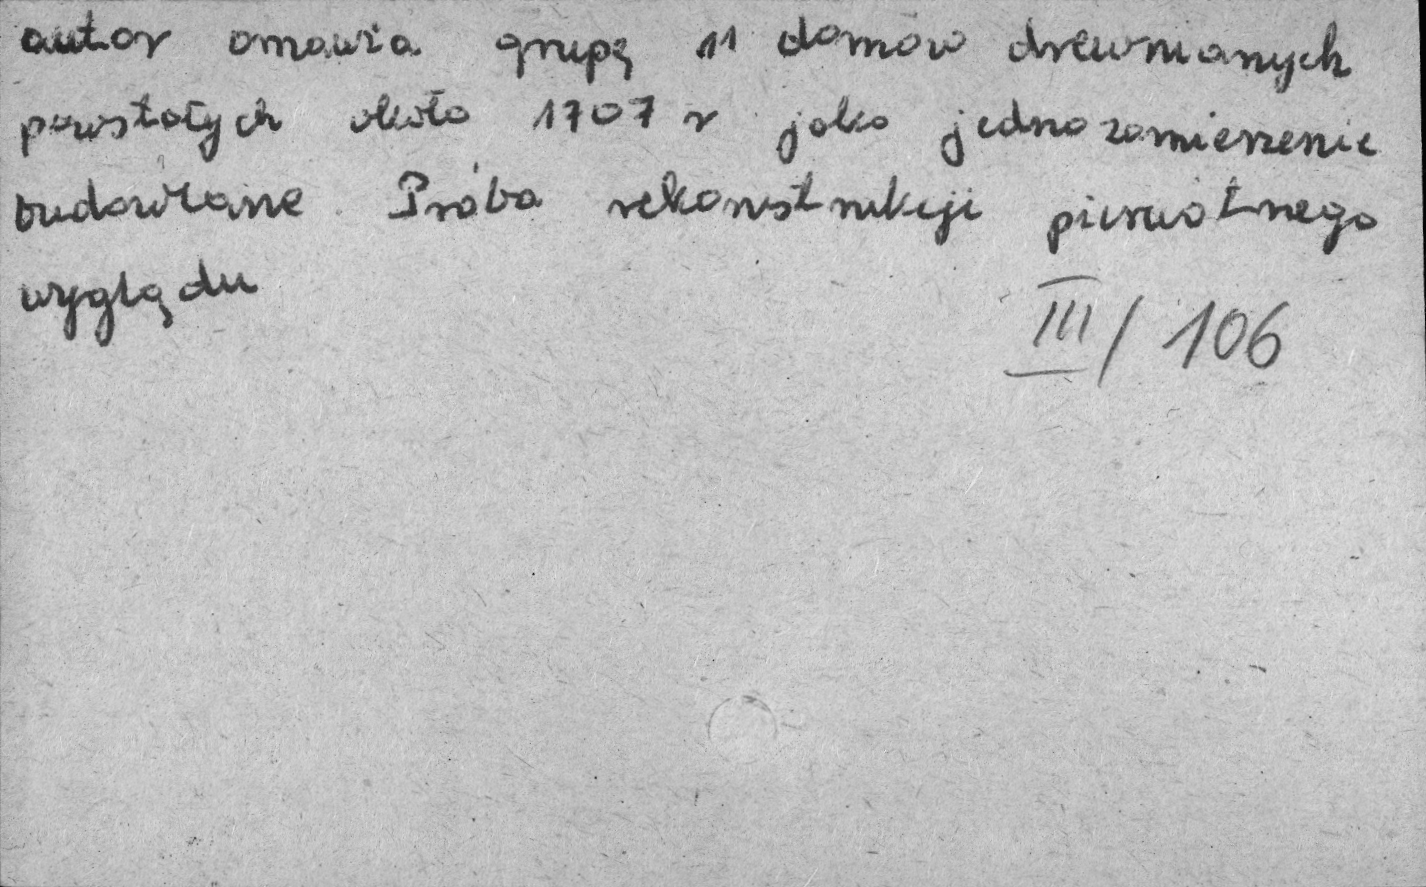 autor omawia grupę 11 domów drewnianych
powstałych około 1707 r jako jedno zamierzenie
budowlane. Próba rekonstrukcji pierwotnego
wyglądu
III/106